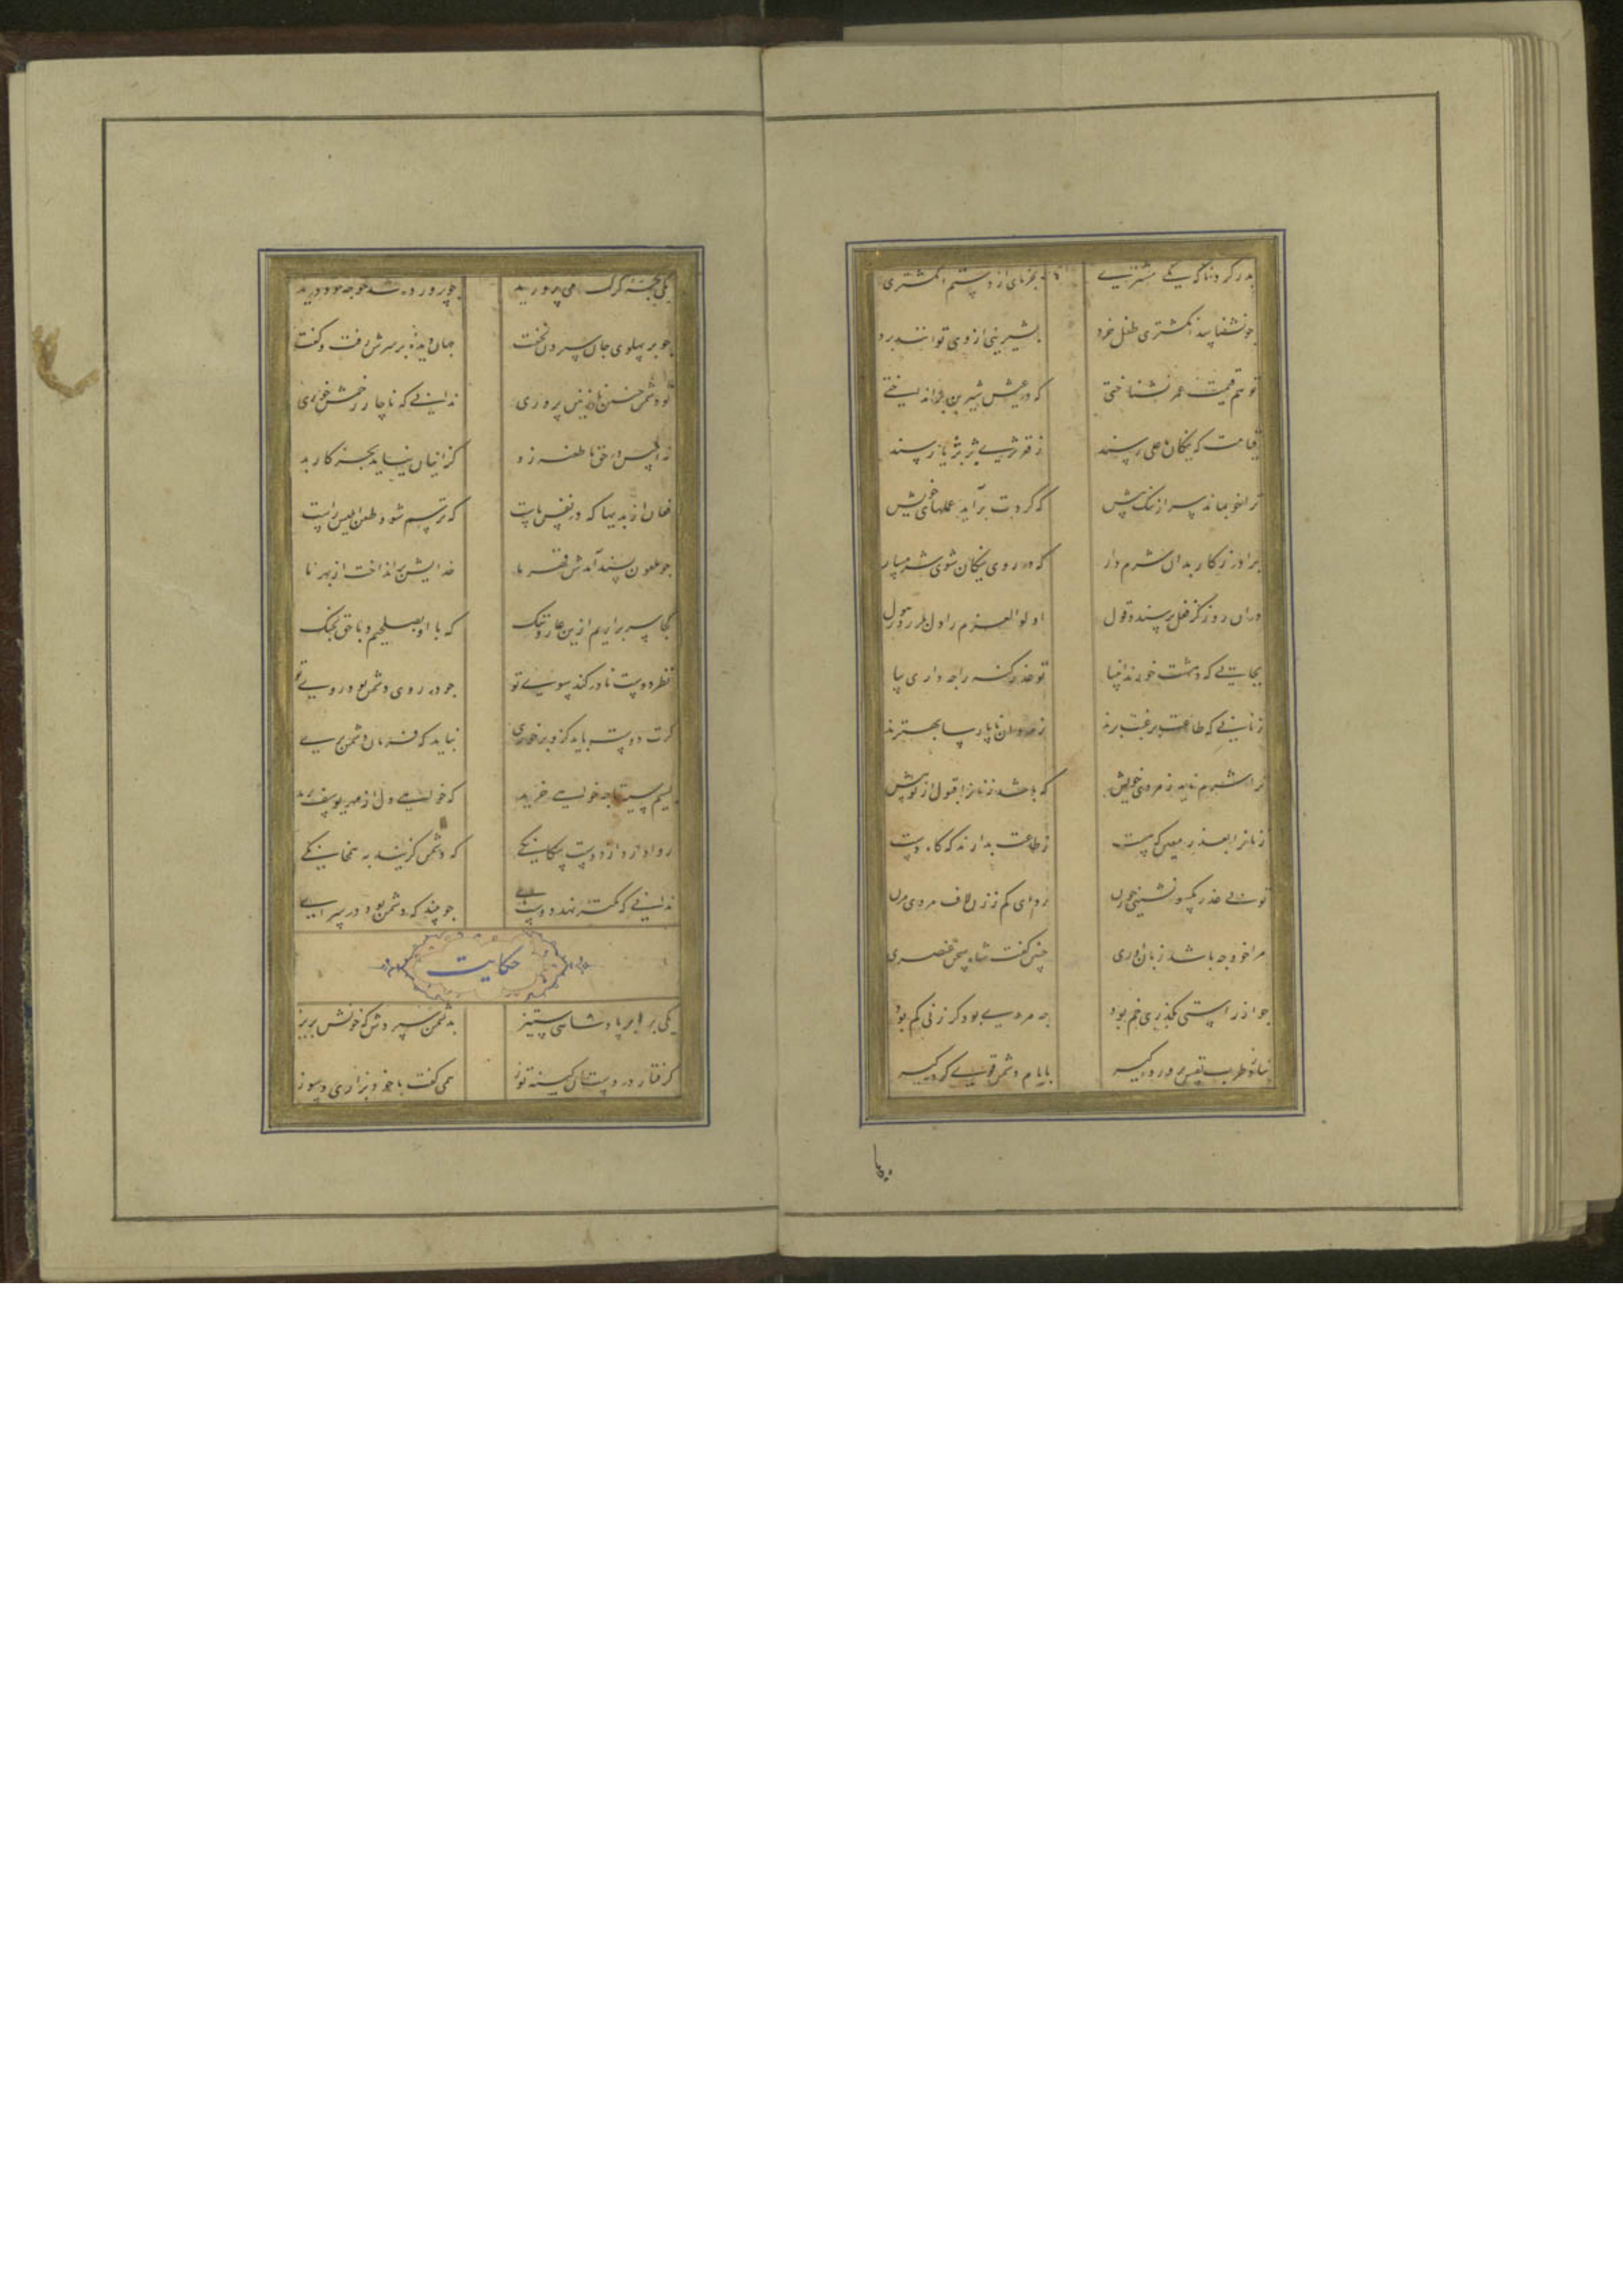 بدر کرد ناگه یکی مشتری بخرمای از دستم انگشتری
چو نشناسد انگشتری طفل خرد بشیرینی از وی توانند برد
تو هم قیمت عمر نشناختی که در عیش شیرین برانداختی
قیامت که نیکان باعلی رسند ز قعر ثری بر ثریا رسند
ترا خود بماند سر از ننک پیش که کردت برآید عملهای خویش
برادر ز کار بدان شرم دار که در روی نیکان شوی شرمسار
دران روز کز فعل پرسند و قول اولوالعزم را دل بلرزد ز هول
بجایی که دهشت خورند انبیا تو عذر کنه را چه داری بیا
زنانی که طاعت برغبت برند ز مردان ناپارسا بهترند
ترا شرم ناید ز مردی خویش که باشد زنانرا قبول از تو بیش
زنانرا بعذر معین که هست ز طاعت بدارند که کاه دست
تو بی عذر یکسو نشینی چو زن رو ای کم ز زن لاف مردی مزن
مرا خود چه باشد زبان آوری چنین کفت شاه سخن عنصری
چو از راستی بکذری خم بود چه مردی بود کز زنی کم بود
بناز و طرب نفس پرورده کیر بایام دشمن قوی کرده کیر
یکی بچه کرک می پرورید چو پرورده شد خواجه را بر درید
چو بر پهلوی جان سپردن بخفت جهان دیده بر سرش رفت و کفت
تو دشمن چنین نازنین پروری ندانی که ناچار زخمش خوری
نه ابلیس در حق ما طعنه زد کز اینان نیاید بجز کار بد
فغان از بدیها که در نفس ماست که ترسم شود طعن ابلیس راست
چو ملعون پسند آمدش قهر ما خدایش برانداخت از بهر ما
کجا سر برآریم ازین عار و ننک که با او بصلحیم و با حق بجنک
نظر دوست نادر کند سوی تو چو در روی دشمن بود روی تو
کرت دوست باید کزو بر خوری نباید که فرمان دشمن بری
بسیم سیه تا چه خواهی خرید که خواهی دل از مهر یوسف برید
روا دارد از دوست بیکانکی که دشمن کزیند به همخانکی
ندانی که کمتر نهد دوست پای چو بیند که دشمن بود در سرای
حکایت
یکی برد بر پادشاهی ستیز بدشمن سپردش که خونش بریز
کرفتار در دست آن کینه توز همی کفت با خود بزاری و سوز